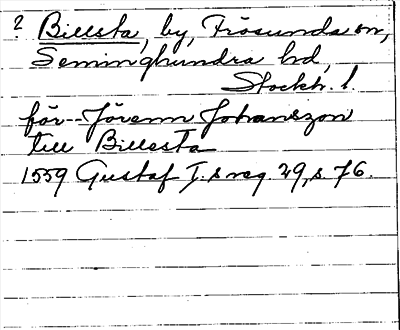 ? Billsta, by, Frösunda sn,
Seminghundra hd,
Stockh. l.
för Jörenn Johanszon
till Billesta
1559 Gustaf I:s reg. 29, s. 76.